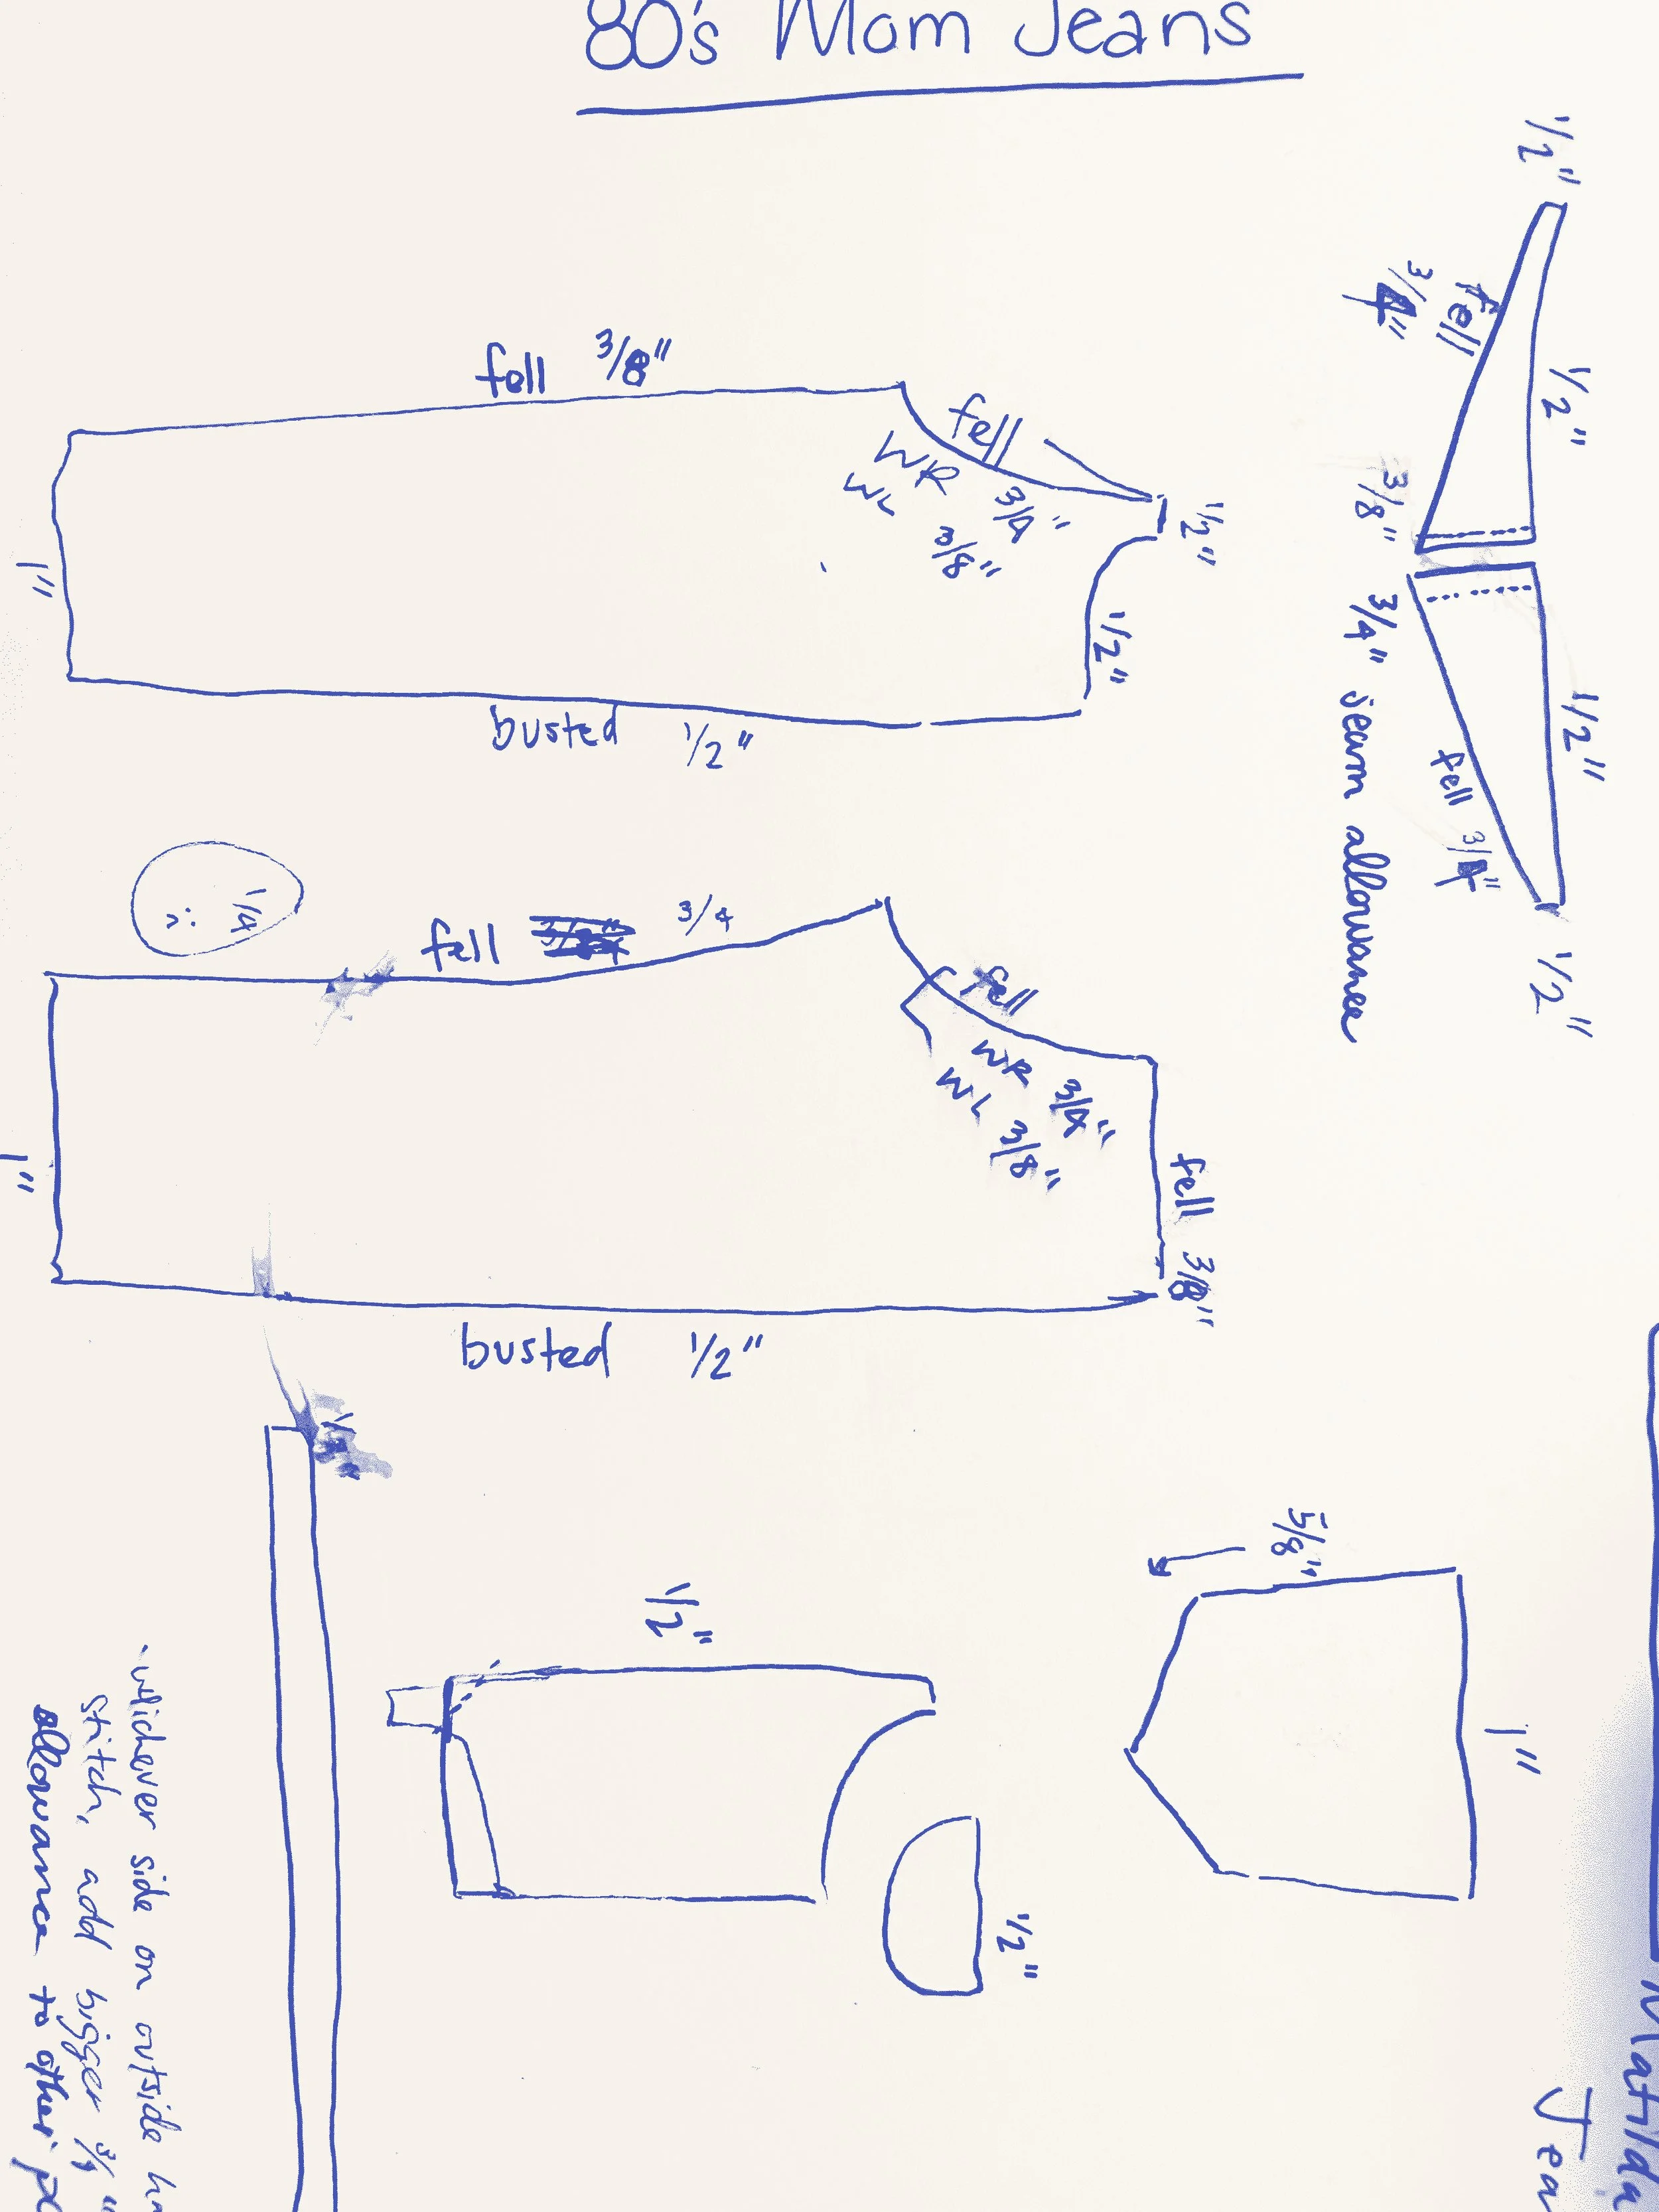 80's Mom Jeans
1/2"
fell
3/4"
1/2"
3/8"
3/4" seam allowance
1/2"
fell 3/4"
1/2"
fell 3/8"
fell
WR 3/4"
WL 3/8"
1/2"
1/2"
1"
busted 1/2"
1/4
fell 3/4
fell
WR 3/4"
WL 3/8"
fell 3/8"
1"
busted 1/2"
5/8"
1"
1/2"
1/2"
-whichever side on outside
stitch, add bigger 3/4"
allowance to other
Matilda
Jea